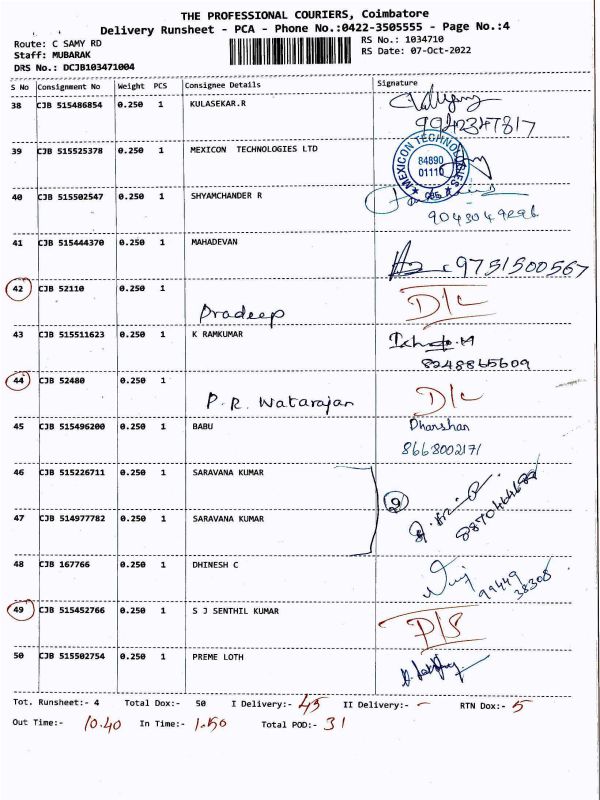 THE PROFESSIONAL COURIERS, Coimbatore
Delivery Runsheet - PCA - Phone No.:0422-3505555 - Page No.:4
Route: C SAMY RD RS No.: 1034710
Staff: MUBARAK RS Date: 07-Oct-2022
DRS No.: DCJB103471004
S No Consignment No Weight PCS Consignee Details Signature
38 CJB 515486854 0.250 1 KULASEKAR.R
9942347817
39 CJB 515525378 0.250 1 MEXICON TECHNOLOGIES LTD
MEXICON TECHNOLOGIES
84890
01110
40 CJB 515502547 0.250 1 SHYAMCHANDER R
41 CJB 515444370 0.250 1 MAHADEVAN
9751500567
42 CJB 52110 0.250 1 D/L
Pradeep
43 CJB 515511623 0.250 1 K RAMKUMAR
8248865609
44 CJB 52480 0.250 1 D/L
P.R. Watarajan
45 CJB 515496200 0.250 1 BABU Dharshan
8668002171
46 CJB 515226711 0.250 1 SARAVANA KUMAR
2
47 CJB 514977782 0.250 1 SARAVANA KUMAR
48 CJB 167766 0.250 1 DHINESH C
99449
38308
49 CJB 515452766 0.250 1 S J SENTHIL KUMAR P/S
50 CJB 515502754 0.250 1 PREME LOTH
Tot. Runsheet:- 4 Total Dox:- 50 I Delivery:- 45 II Delivery:- - RTN Dox:- 5
Out Time:- 10.40 In Time:- 1.50 Total POD:- 31